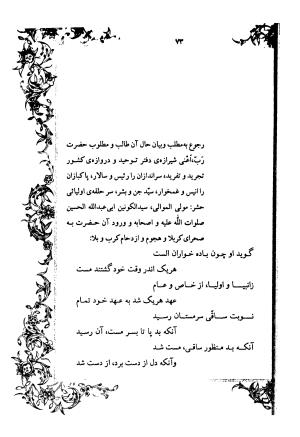 ۷۳
رجوع به مطلب و بیان حال آن طالب و مطلوب حضرت
رَبّ، اَعْنی شیرازه‌ی دفتر توحید و دروازه‌ی کشور
تجرید و تفرید، سراندازان را رئیس و سالار، پاکبازان
را انیس و غمخوار، سیّد جن و بشر، سر حلقه‌ی اولیائی
حشر: مولی الموالی، سیدالکونین ابی‌عبدالله الحسین
صلوات اللّه علیه و اصحابه و ورود آن حضرت به
صحرای کربلا و هجوم و ازدحام کرب و بلا:
گوید او چون باده خواران الست
هریک اندر وقت خود گشتند مست
زانبیا و اولیا، از خاص و عام
عهد هریک شد به عهد خود تمام
نوبت ساقی سرمستان رسید
آنکه بد پا تا بسر مست، آن رسید
آنکه بد منظور ساقی، مست شد
وآنکه دل از دست برد، از دست شد